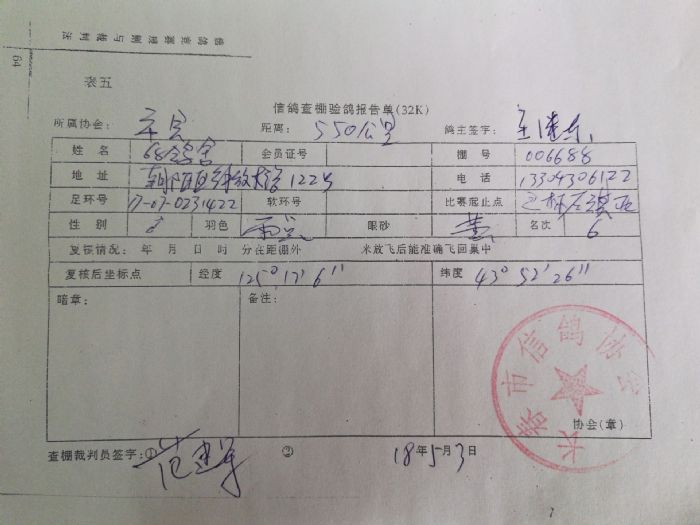 信鸽竞赛规则与裁判法
64
表五
信鸽查棚验鸽报告单(32K)
所属协会： 距离：550公里 鸽主签字：
姓名 会员证号 棚号 006688
地址 122号 电话 13304306122
足环号 17-07-0231422 软环号 比赛起止点
性别 ♂ 羽色 雨点 眼砂 黄 名次 6
复核情况： 年 月 日 时 分在距棚外 米放飞后能准确飞回巢中
复核后坐标点 经度 125° 17′ 6″ 纬度 43° 52′ 26″
暗章： 备注：
长春市信鸽协会
协会(章)
查棚裁判员签字：① ② 18年5月3日